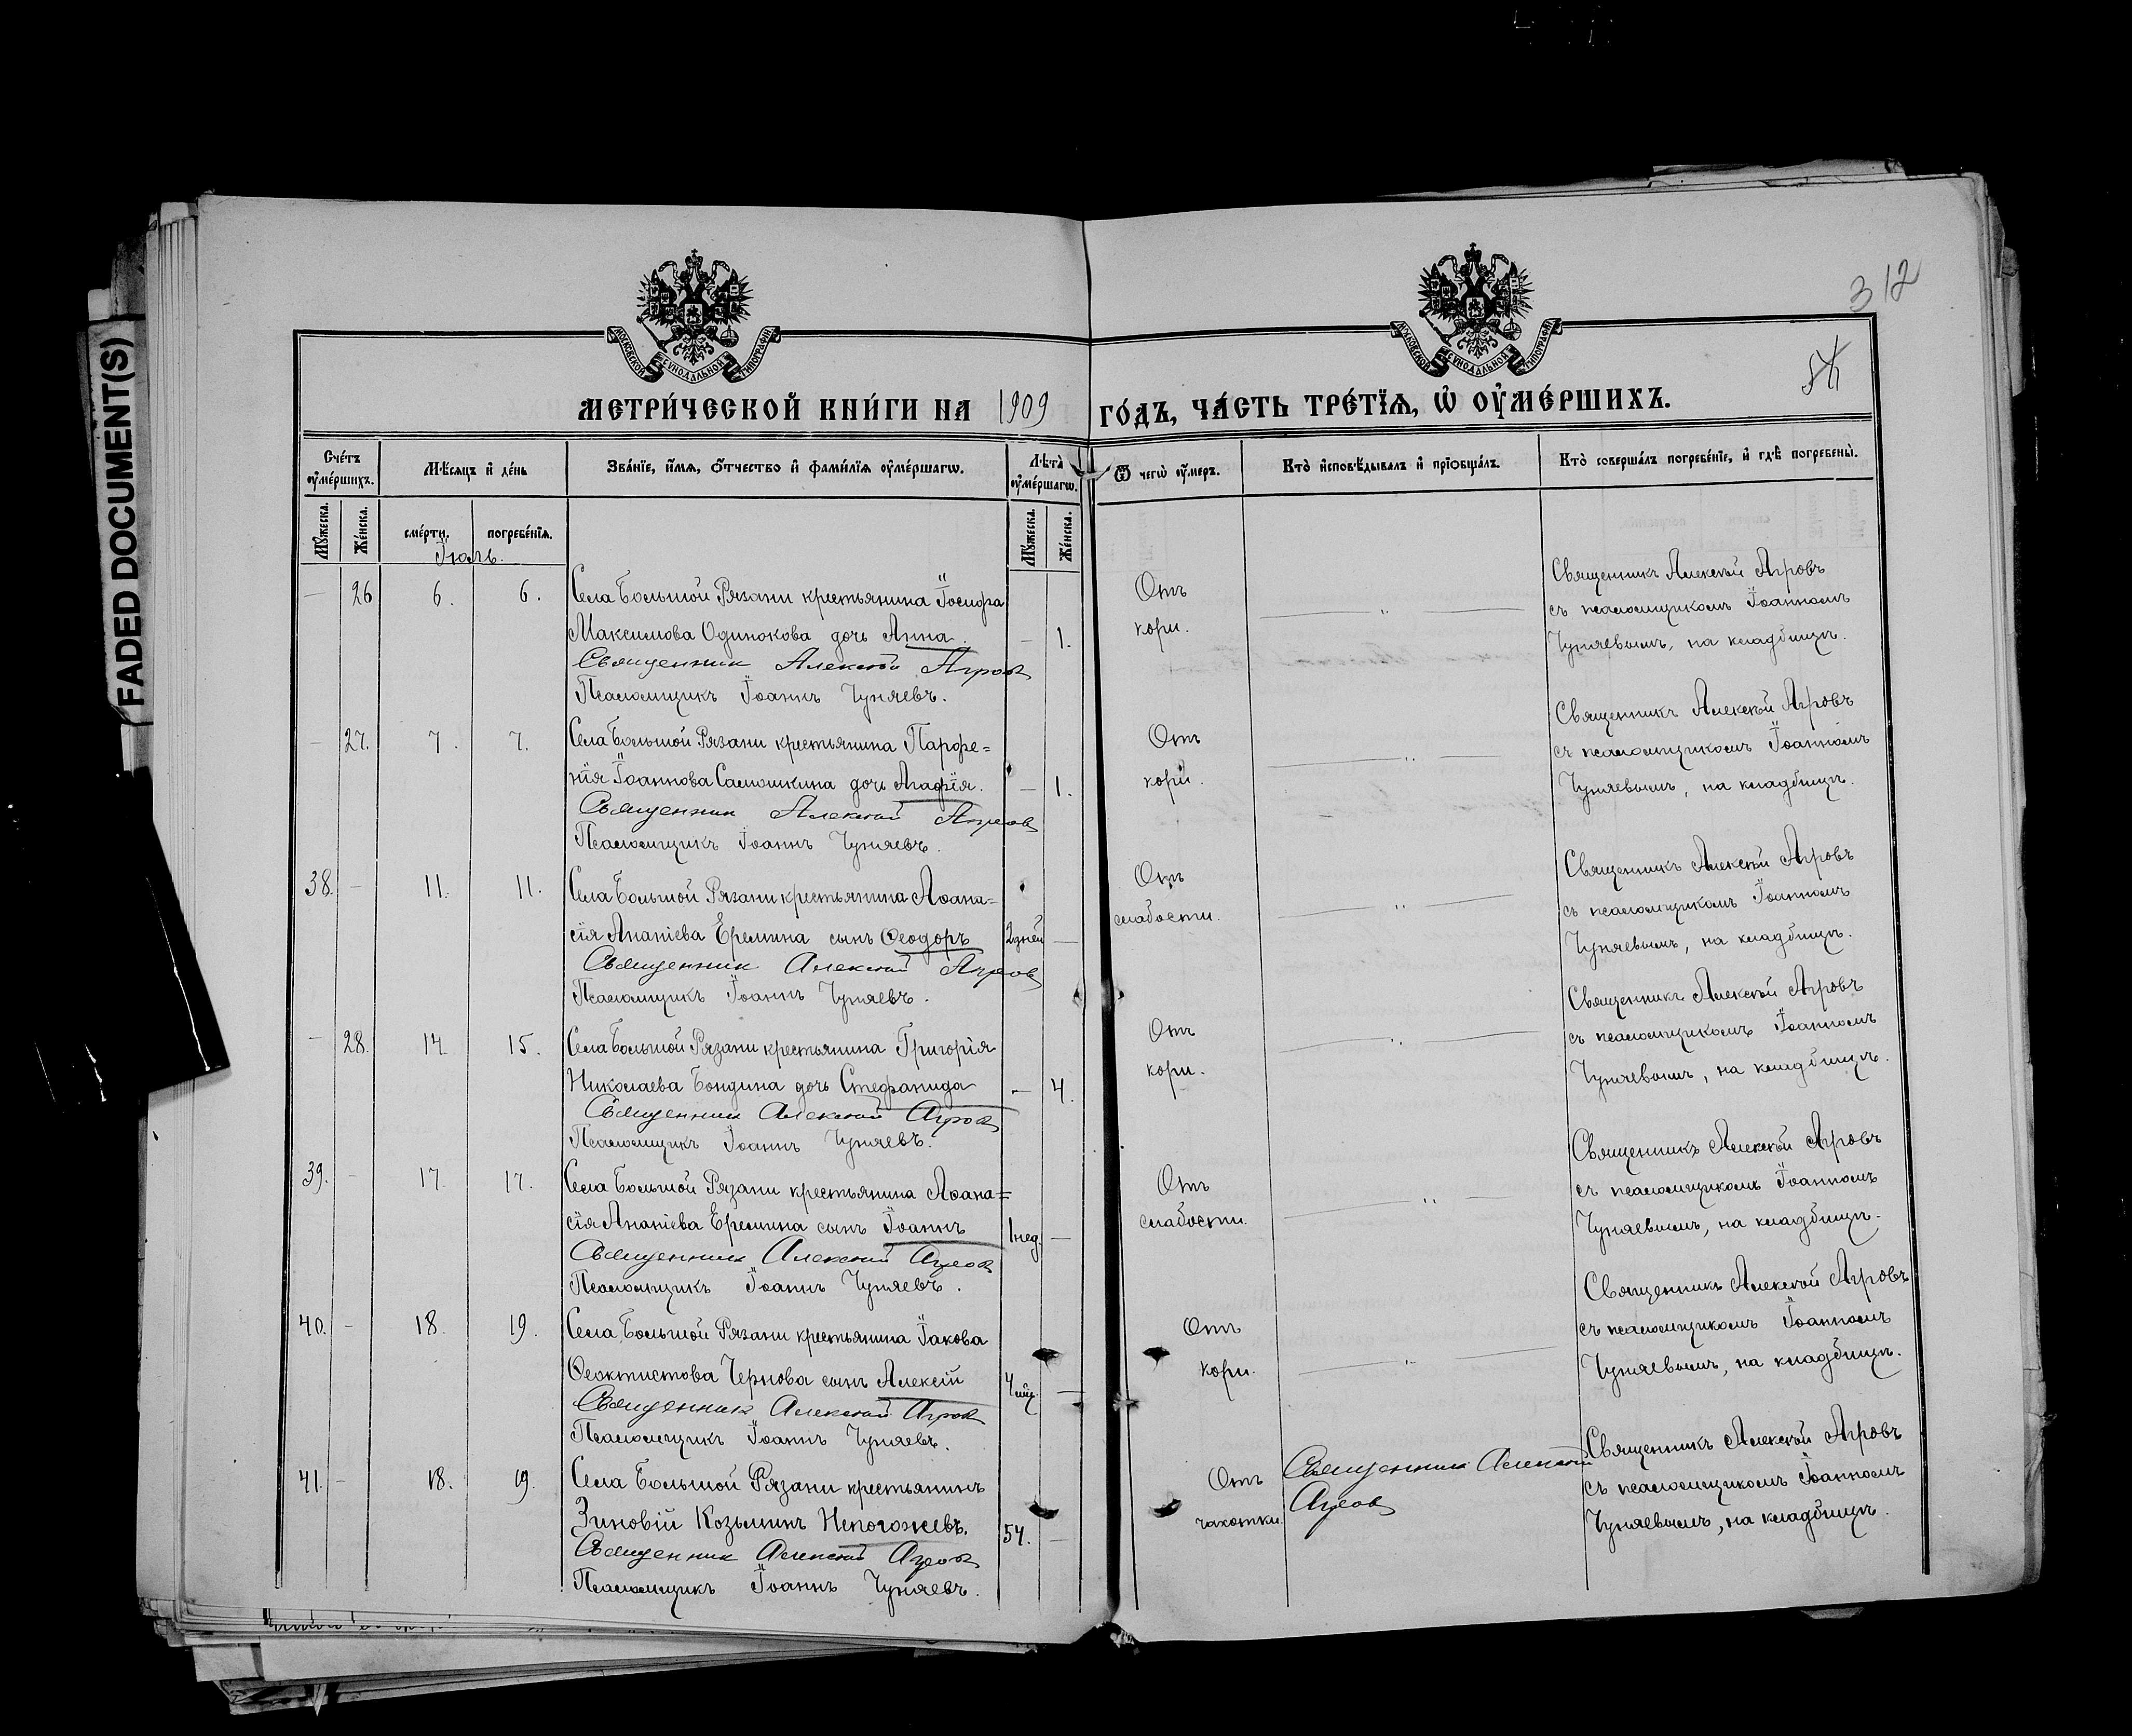 FADED DOCUMENT(S)
312
МОСКОВСКОЙ СѴНОДАЛЬНОЙ ТИПОГРАФІИ
МОСКОВСКОЙ СѴНОДАЛЬНОЙ ТИПОГРАФІИ
МЕТРИ́ЧЕСКОЙ КНИ́ГИ НА 1909 ГО́ДЪ, ЧА́СТЬ ТРЕ́ТЇѦ, Ѡ҆ ОУ҆МЕ́РШИХЪ.
Сче́тъ оу҆ме́ршихъ.
Мѣ́сѧцъ и҆ де́нь
Зва́нїе, и҆́мѧ, ѻ҆́тчество и҆ фами́лїѧ оу҆ме́ршагѡ.
Лѣ́та оу҆ме́ршагѡ.
Ѿ чегѡ̀ оу҆́меръ.
Кто̀ и҆сповѣ́дывалъ и҆ прїѡбща́лъ.
Кто̀ соверша́лъ погребе́нїе, и҆ гдѣ̀ погребены̀.
Мꙋ́жеска.
Же́нска.
сме́рти.
погребе́нїѧ.
Мꙋ́жеска.
Же́нска.
Іюль.
— 26 6. 6. Села Большой Рязани крестьянина Іосифа
Максимова Одинокова дочь Анна. — 1.
Священник Алексій Агров
Псаломщикъ Іоаннъ Чуняевъ.
Отъ
кори.
— „ —
Священникъ Алексѣй Агровъ
съ псаломщикомъ Іоанномъ
Чуняевымъ, на кладбищѣ.
— 27. 7. 7. Села Большой Рязани крестьянина Парфе=
нія Іоаннова Самошкина дочь Агафія. — 1.
Священник Алексій Агров
Псаломщикъ Іоаннъ Чуняевъ.
Отъ
кори.
— „ —
Священникъ Алексѣй Агровъ
съ псаломщикомъ Іоанномъ
Чуняевымъ, на кладбищѣ.
38. — 11. 11. Села Большой Рязани крестьянина Аѳана=
сія Ананіева Еремина сынъ Ѳеодоръ 2 дней —
Священник Алексій Агров
Псаломщикъ Іоаннъ Чуняевъ.
Отъ
слабости.
— „ —
Священникъ Алексѣй Агровъ
съ псаломщикомъ Іоанномъ
Чуняевымъ, на кладбищѣ.
— 28. 14. 15. Села Большой Рязани крестьянина Григорія
Николаева Бондина дочь Стефанида — 4.
Священник Алексій Агров
Псаломщикъ Іоаннъ Чуняевъ.
Отъ
кори.
— „ —
Священникъ Алексѣй Агровъ
съ псаломщикомъ Іоанномъ
Чуняевымъ, на кладбищѣ.
39. — 17. 17. Села Большой Рязани крестьянина Аѳана=
сія Ананіева Еремина сынъ Іоаннъ 1 нед. —
Священник Алексій Агров
Псаломщикъ Іоаннъ Чуняевъ.
Отъ
слабости.
— „ —
Священникъ Алексѣй Агровъ
съ псаломщикомъ Іоанномъ
Чуняевымъ, на кладбищѣ.
40. — 18. 19. Села Большой Рязани крестьянина Іакова
Ѳеоктистова Чернова сынъ Алексій 4 мѣц. —
Священник Алексій Агров
Псаломщикъ Іоаннъ Чуняевъ.
Отъ
кори.
— „ —
Священникъ Алексѣй Агровъ
съ псаломщикомъ Іоанномъ
Чуняевымъ, на кладбищѣ.
41. — 18. 19. Села Большой Рязани крестьянинъ
Зиновій Козьминъ Непогожевъ. 54. —
Священник Алексій Агров
Псаломщикъ Іоаннъ Чуняевъ.
Отъ
чахотки.
Священник Алексій
Агров
Священникъ Алексѣй Агровъ
съ псаломщикомъ Іоанномъ
Чуняевымъ, на кладбищѣ.